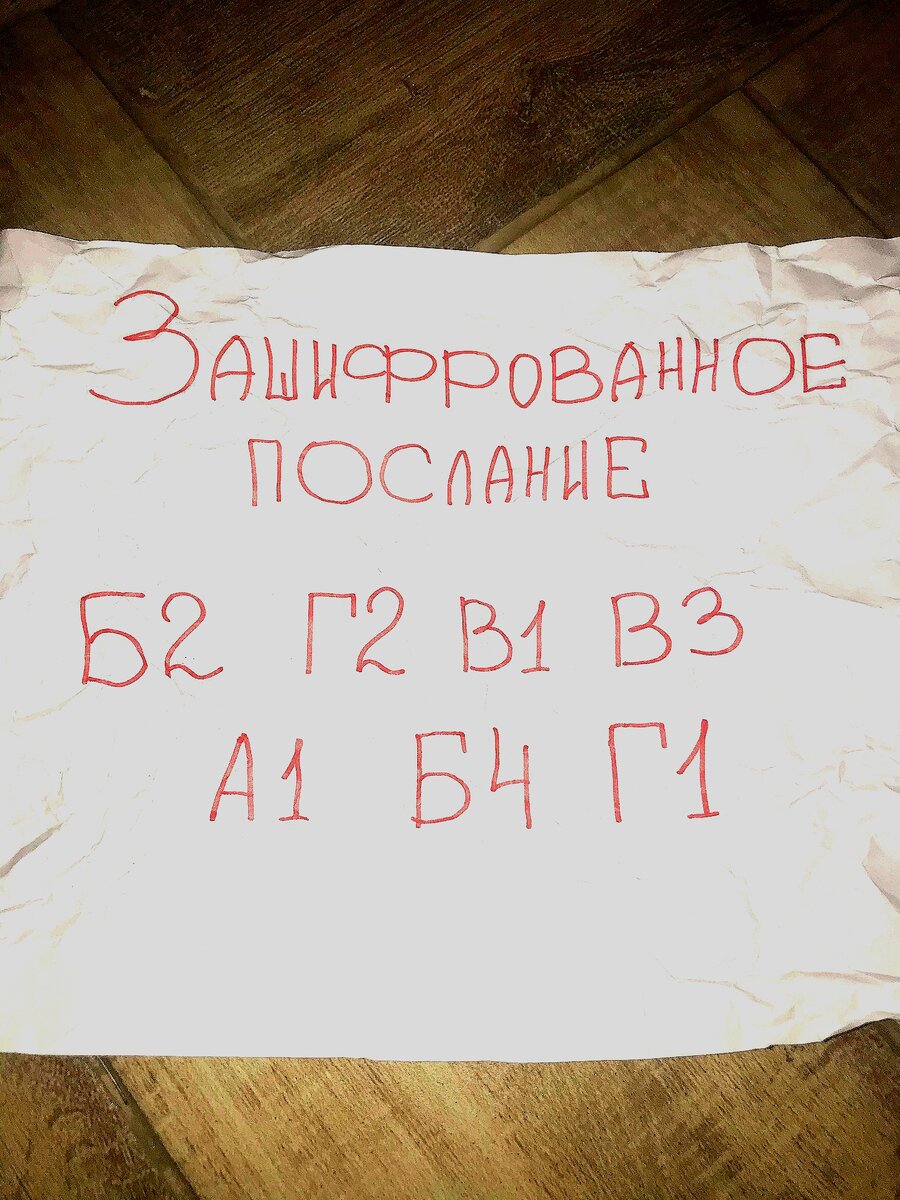 Зашифрованное
послание
Б2 Г2 В1 В3
А1 Б4 Г1